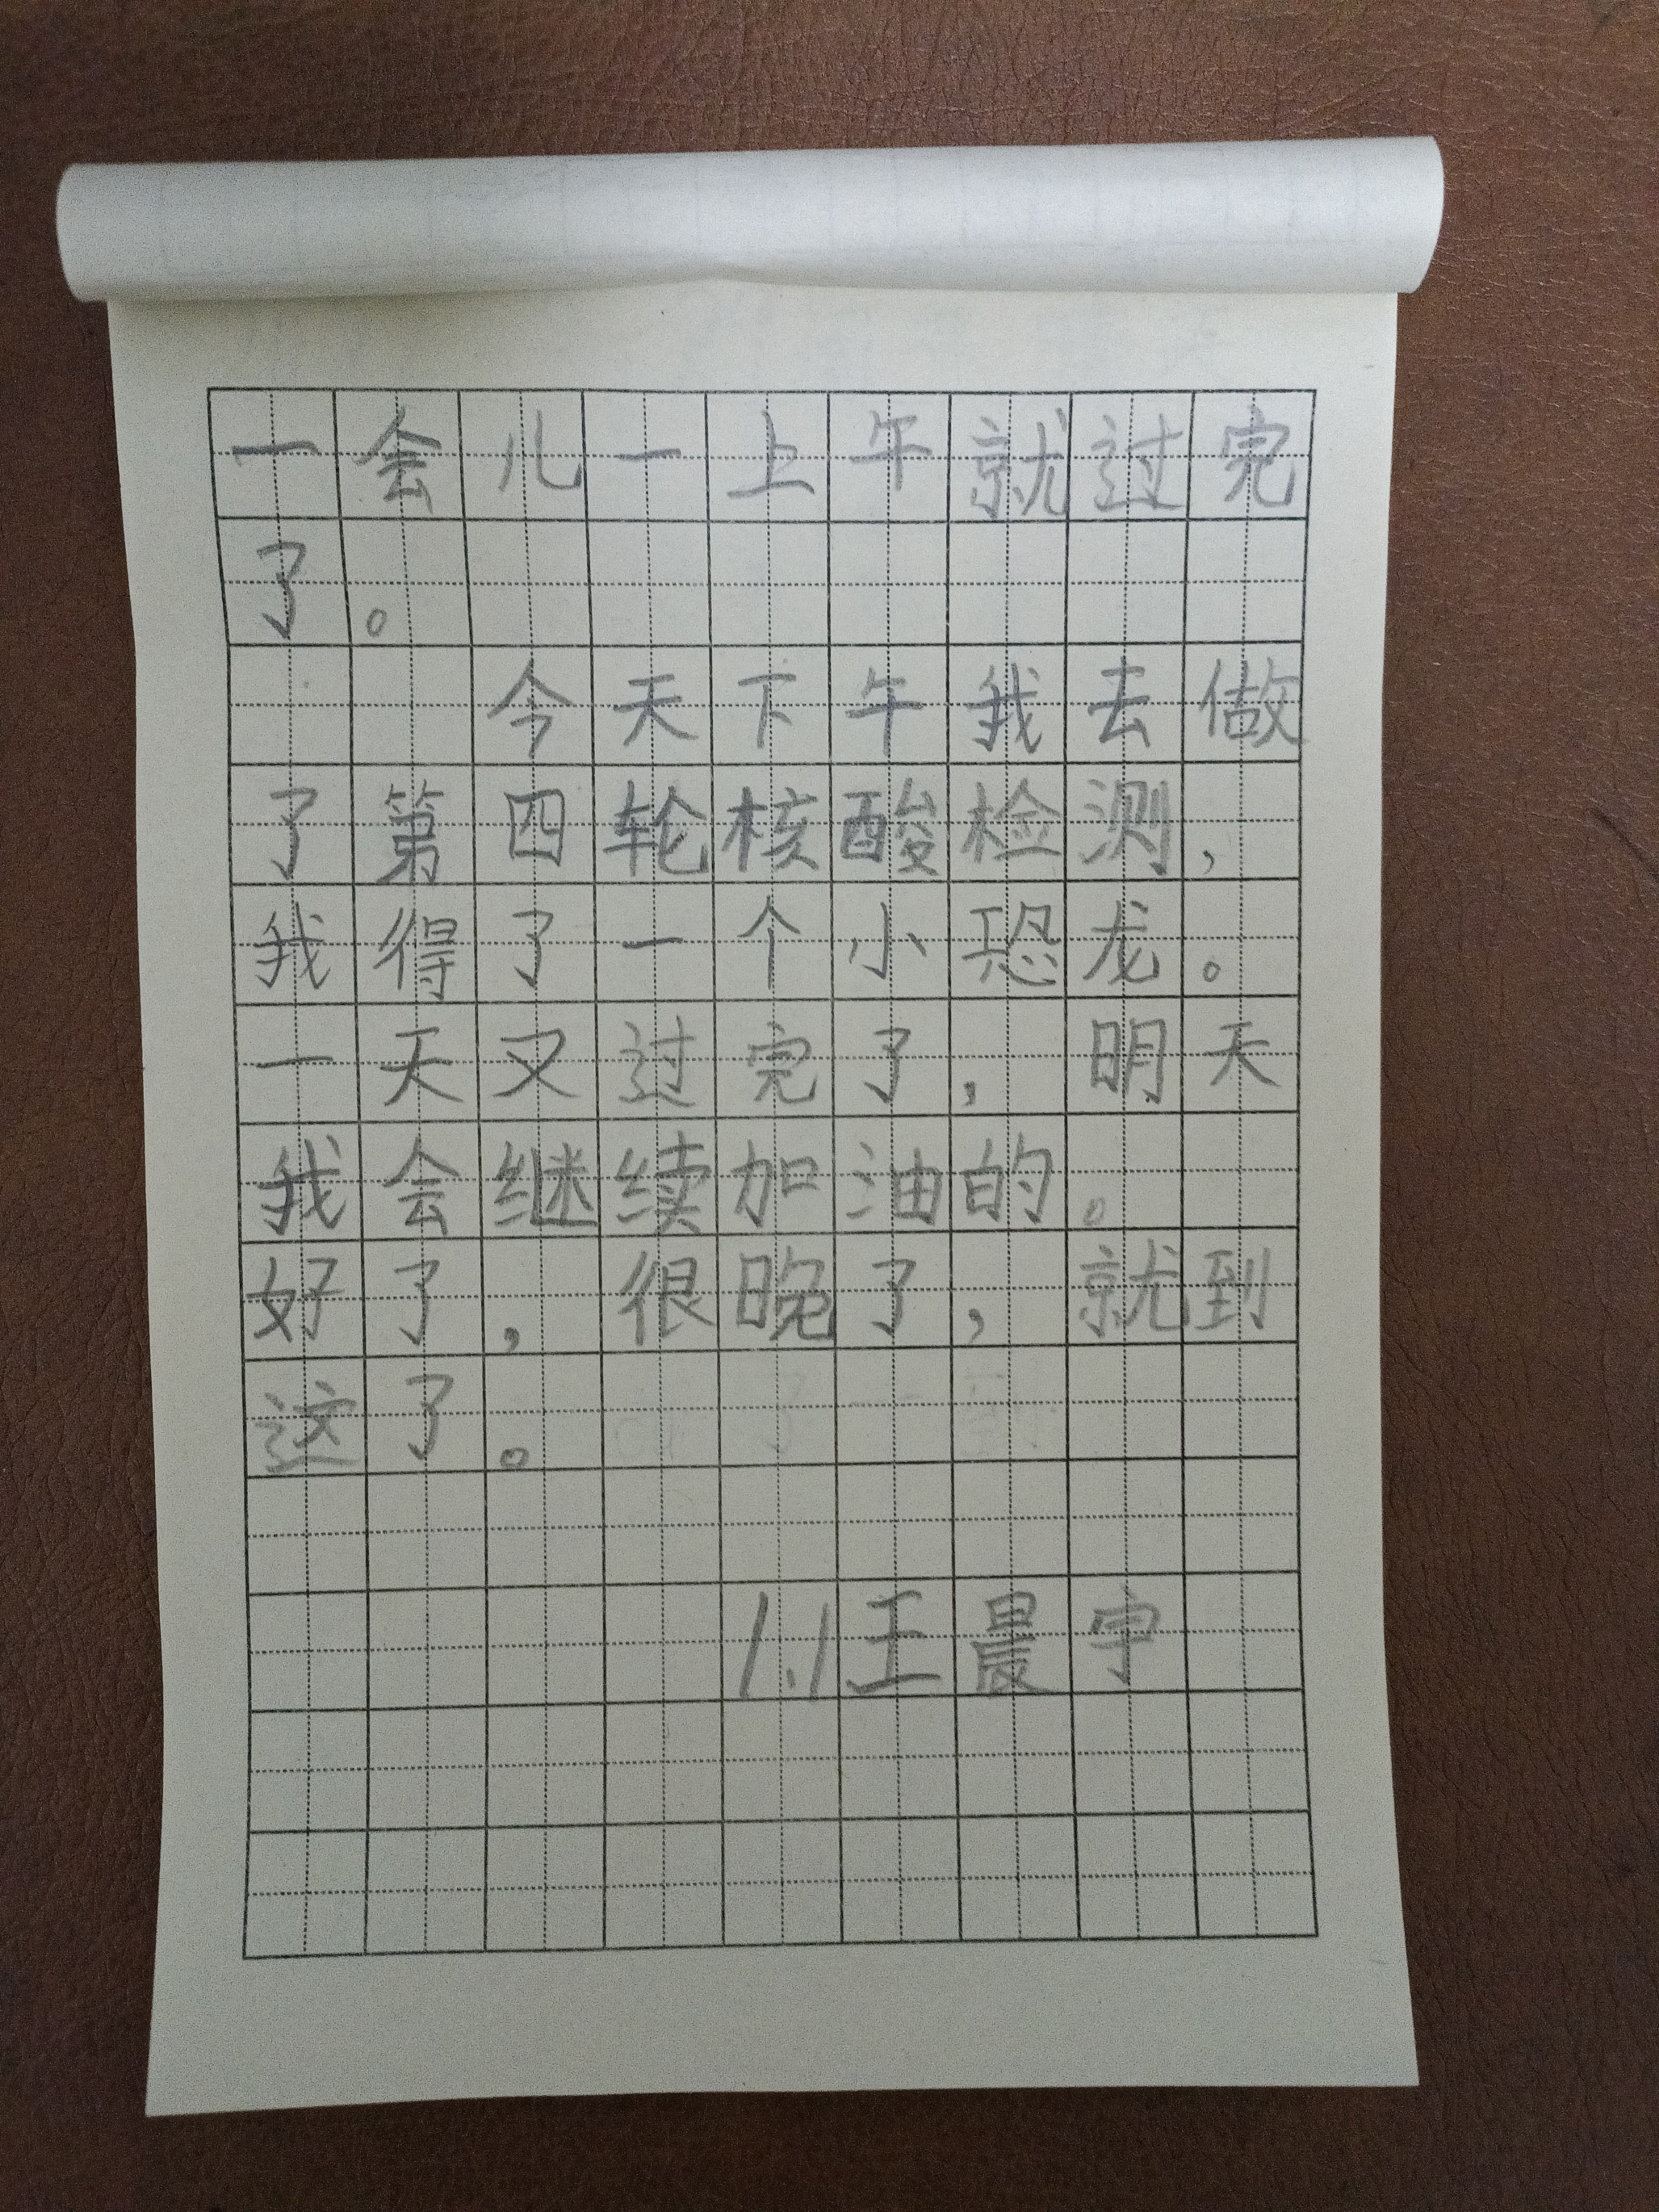 一会儿一上午就过完
了。
今天下午我去做
了第四轮核酸检测，
我得了一个小恐龙。
一天又过完了，明天
我会继续加油的。
好了，很晚了，就到
这了。
1.1王晨宇